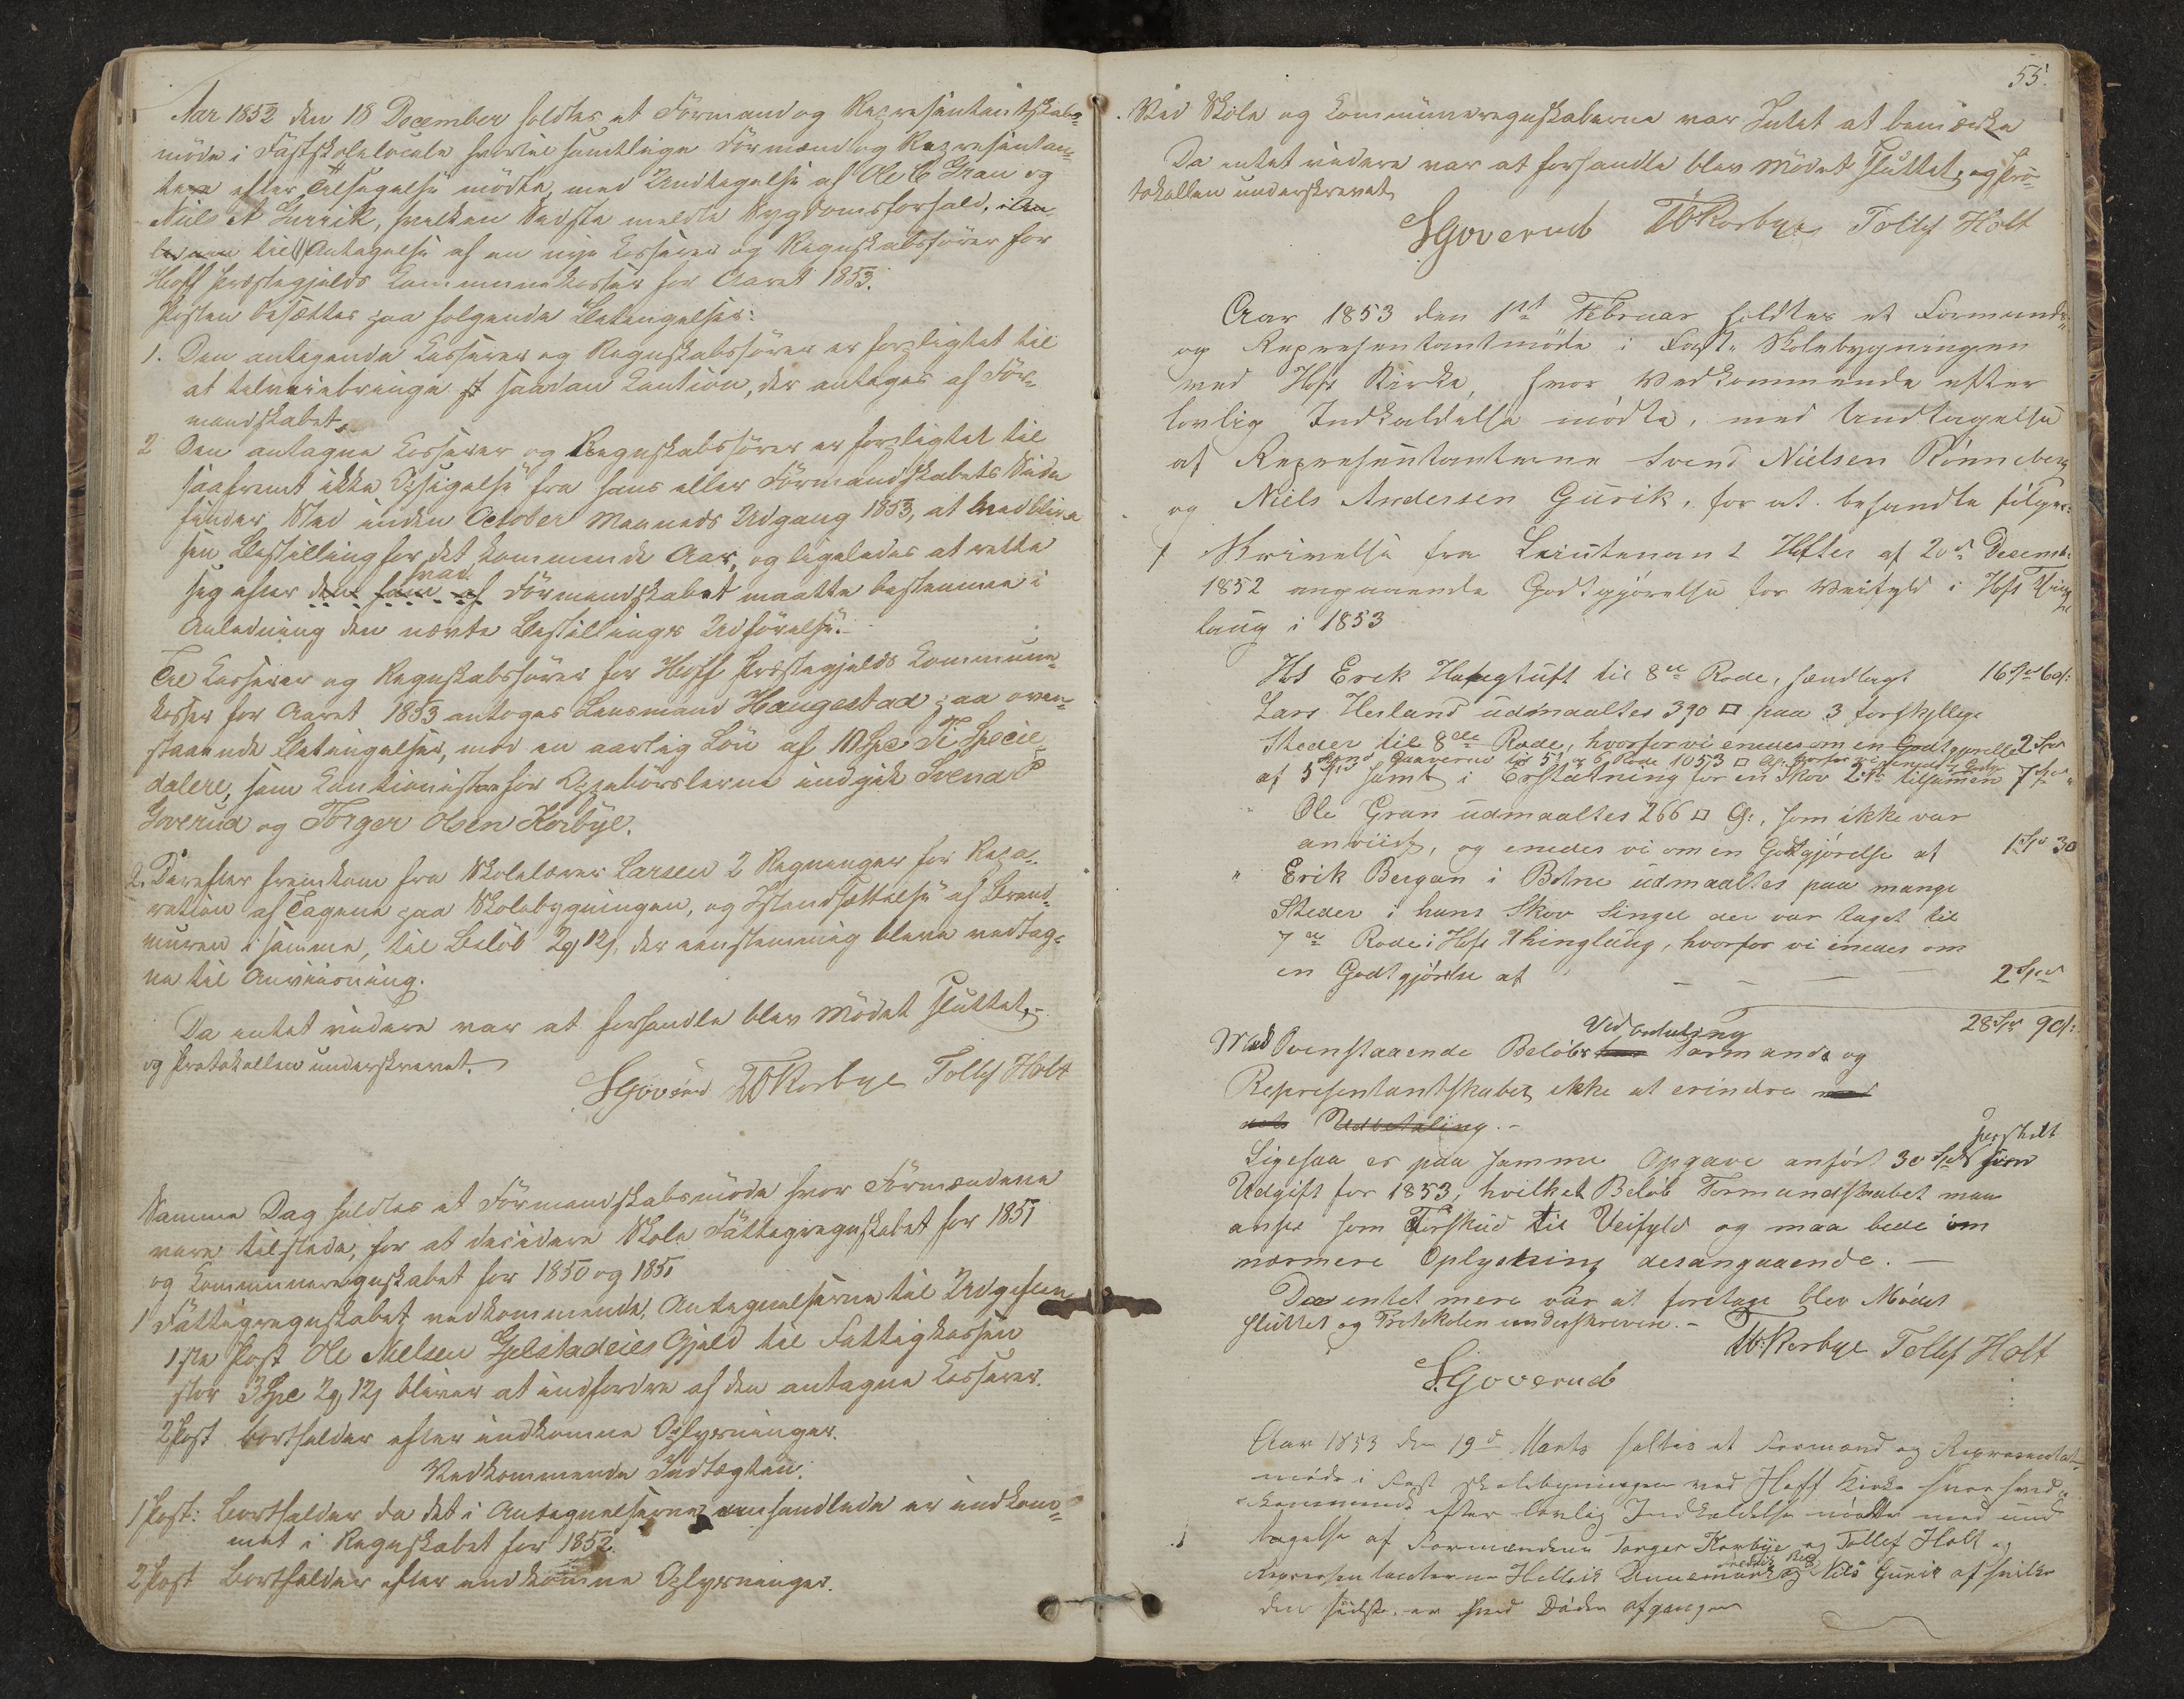 Aar 1852 den 18 December holdtes et Formand og Repræsentantskabs-
möde i Fastskolelocale hvortil samtlige Formænd og Repræsentan-
tere efter Tilsigelse mödte, med Undtagelse af Ole C Gran og
Niels A Gurrik, hvilken Sidste meldte Sygdomsforfald,
til Antagelse af en nye Casserer og Regnskabsförer for
Hoff Præstegjelds Communekasse for Aaret 1853.
Posten besættes paa følgende Betingelser:
1. Den antagende Casserer og Regnskabsförer er forpligtet til
at tilveiebringe saadan Caution, der antages af For-
mandskabet.
2 Den antagne Casserer og Regnskabsförer er forpligtet til
saafremt ikke Opsigelse fra hans eller Formandskabets Side
finder Sted inden October Maaneds Udgang 1853, at vedblive
sin Bestilling for det kommende Aar, og ligeledes at rette
hvad
sig efter den som af Formandskabet maatte bestemme i
Anledning den nævte Bestillings Udförelse.
Til Casserer og Regnskabsförer for Hoff Præstegjelds Commune-
kasse for Aaret 1853 antoges Lensmand Haugestad paa oven-
staaende Betingelser, mod en aarlig Lön af 10 Spe Ti Specie-
dalere, som Cautionister for Opebörslerne indgik Svend P
Goverud og Torger Olsen Korbye.
2. Derefter fremkom fra Skolelærer Larsen 2 Regninger for Repa-
ration af Tagene paa Skolebygningen, og Istandsættelse af Brand-
muren i samme, til Belöb 2 12, der eenstemmig bleve vedtag-
ne til Anviisning.
Da intet videre var at forhandle blev Mödet sluttet,
og Protokollen underskrevet.
SGoverud TOKorbye Tollef Holt
Samme Dag holdtes et Formandskabsmöde hvor Formændene
vare tilstede, for at decidere Skole Fattigregnskabet for 1851
og Communeregnskabet for 1850 og 1851
1 Fattigregnskabet vedkommende, Antegnelserne til Udgiften
1ste Post Ole Nielsen Gjelstadeies Gjeld til Fattigkassen
stor 3 Spe 2 12 bliver at indfordre af den antagne Casserer.
2 Post bortfalder efter indkomne Oplysninger.
Vedkommende Indtægten.
1 Post: Bortfalder da det i Antegnelserne omhandlede er indkom-
met i Regnskabet for 1852.
2 Post Bortfalder efter indkomne Oplysninger.
55.
Ved Skole og Communeregnskaberne var Intet at bemærke
Da intet videre var at forhandle blev Mödet sluttet, og Pro-
tokollen underskrevet
SGoverud TOKorbye Tollef Holt
Aar 1853 den 1ste Februar holdtes et Formands-
og Representantmöde i Fast Skolebygningen
ved Hofs Kirke, hvor Vedkommende efter
lovlig Indkaldelse mödte, med Undtagelse
af Representanterne Svend Nielsen Rönneberg
og Niels Andersen Gurik, for at behandle fölgen:
1 Skrivelse fra Leiutenant Hofter af 20de Decemb:
1852 angaaende Godtgjörelse for Veifyld i Hofs Thing
laug i 1853
Hos Erek Haugtuft til 8de Rode, 16 Spd 60 s:
Lars Hesland udmaaltes 390 □ paa 3 forskjellige
Steder til 8de Rode, hvorfor vi enedes om en Godtgjörelse 2 Spd
Gaaverud til 5te og 6 Rode 1053 □
af 5 Spd samt i Erstatning for en Skov 2 Spd tilsamen 7 Spd "
Ole Gran udmaaltes 266 □ A:, som ikke var
anviist, og enedes vi om en Godtgjörelse af 1 Spd 30
" Erik Bergan i Botne udmaaltes paa mange
Steder i hans Skov Singel der var taget til
7de Rode i Hofs Thinglaug, hvorfor vi enedes om
en Godtgjörelse af — — — 2 Spd
28 Spd 90 s:
Ved Utbetaling
Mod Ovenstaaende Belöbs har Formands og
Representantskabet ikke at erindre med
dets Udbetaling. -
Ligesaa er paa samme Opgave anfört 30 Spd som
Udgift for 1853, hvilket Belöb Formandskabet maa
anse som Forskud til Veifyld og maa bede om
nærmere Oplysning desangaaende. —
Da entet mere var at foretage blev Mödet
sluttet og Protokolen underskreven. -
TO: Korbye Tollef Holt
S.Goverud
Aar 1853 den 19de Marts holtes et Formand og Representat
möde i Fast Skolebygningen ved Hoff Kirke hvor ved-
kommende efter lovlig Indkaldelse mödte med und
tagelse af Formændene Torger Korbye og Tollef Holt og
Representanterne Helleik Dunemark og Nils Gurik af hvilke
den sidste er ved Döden afgangen